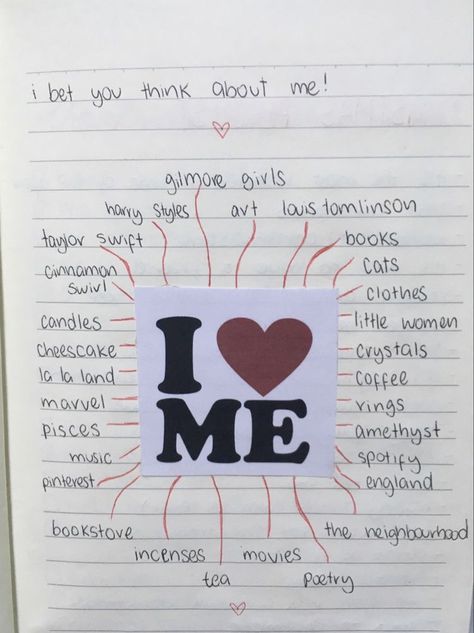 i bet you think about me!
gilmore girls
harry styles art louis tomlinson
taylor swift books
cinnamon swirl cats
clothes
candles little women
cheescake crystals
la la land coffee
marvel rings
pisces amethyst
music spotify
pinterest england
I ❤ ME
bookstore the neighbourhood
incenses movies
tea poetry